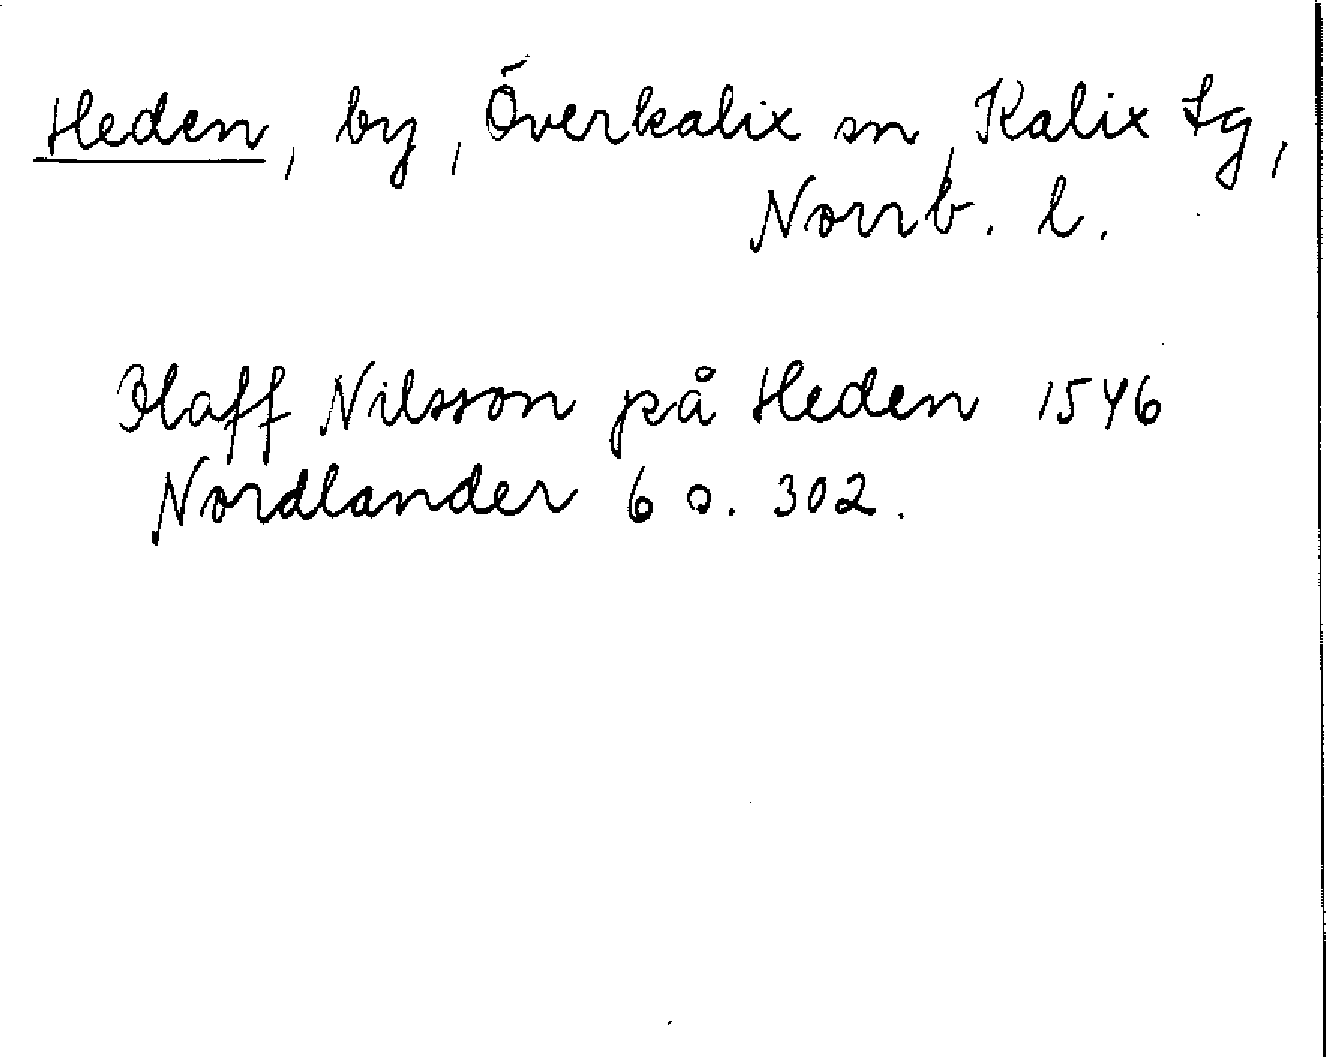 Heden, by, Överkalix sn, Kalix tg,
Norrb. l.
Olaff Nilsson på Heden 1546
Nordlander 6 s. 302.